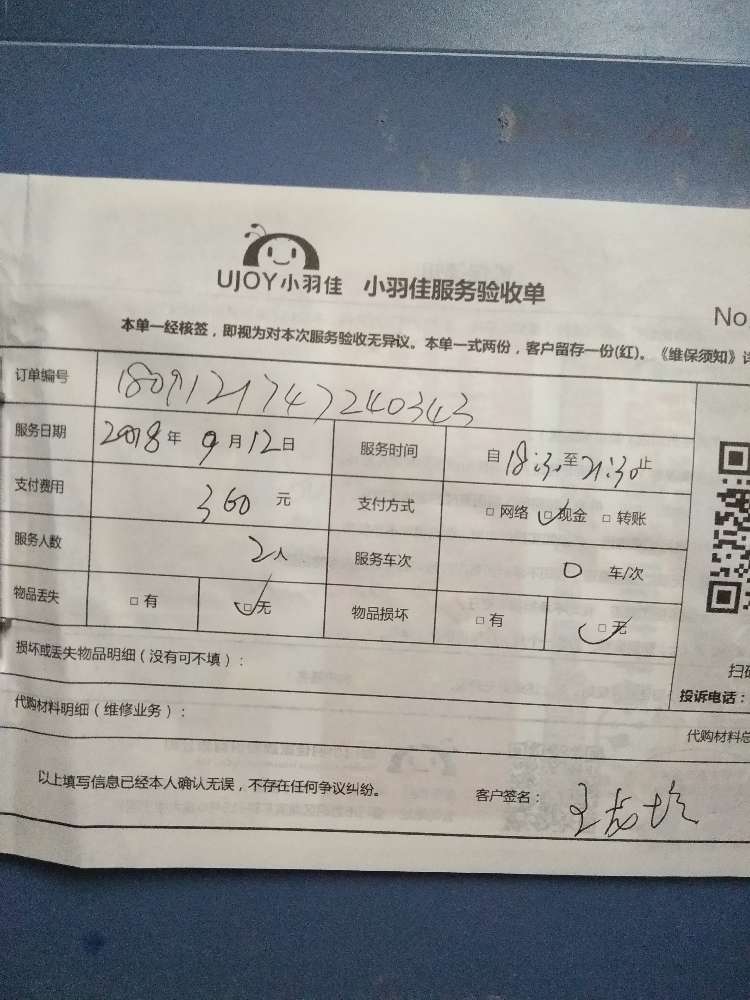 UJOY小羽佳 小羽佳服务验收单
No
本单一经核签，即视为对本次服务验收无异议。本单一式两份，客户留存一份(红)。《维保须知》详
订单编号 1809121747240343
服务日期 2018年 9月12日 服务时间 自18:30至21:30止
支付费用 360 元 支付方式 □网络 □现金 □转账
服务人数 2人 服务车次 0 车/次
物品丢失 □有 □无 物品损坏 □有 □无
扫码
损坏或丢失物品明细（没有可不填）：
投诉电话：
代购材料明细（维修业务）：
代购材料总
以上填写信息已经本人确认无误，不存在任何争议纠纷。 客户签名：